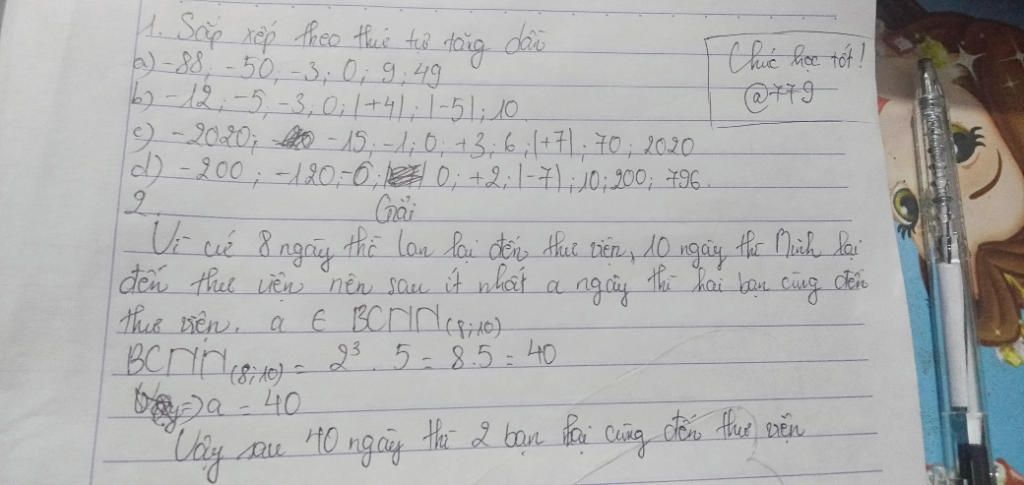 1. Sắp xếp theo thứ tự tăng dần
a) -88; -50; -3; 0; 9; 49
b) -12; -5; -3; 0; |+4|; |-5|; 10
c) -2020; -15; -1; 0; +3; 6; |+7|; 70; 2020
d) -200; -120; -6; 0; +2; |-7|; 10; 200; 796.
Chúc học tốt!
@779
2. Giải
Vì cứ 8 ngày thì Lan lại đến thư viện, 10 ngày thì Minh lại
đến thư viện nên sau ít nhất a ngày thì hai bạn cùng đến
thư viện. a ∈ BCNN(8;10)
BCNN(8;10) = 2³ . 5 = 8.5 = 40
=> a = 40
Vậy sau 40 ngày thì 2 bạn lại cùng đến thư viện